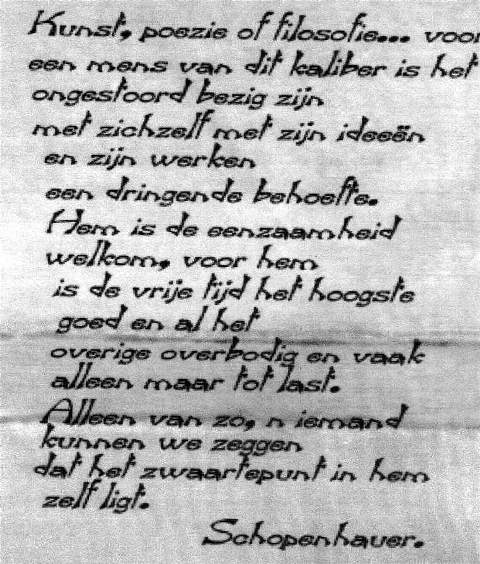 Kunst, poezie of filosofie... voor
een mens van dit kaliber is het
ongestoord bezig zijn
met zichzelf met zijn ideeën
en zijn werken
een dringende behoefte.
Hem is de eenzaamheid
welkom, voor hem
is de vrije tijd het hoogste
goed en al het
overige overbodig en vaak
alleen maar tot last.
Alleen van zo, n iemand
kunnen we zeggen
dat het zwaartepunt in hem
zelf ligt.
Schopenhauer.